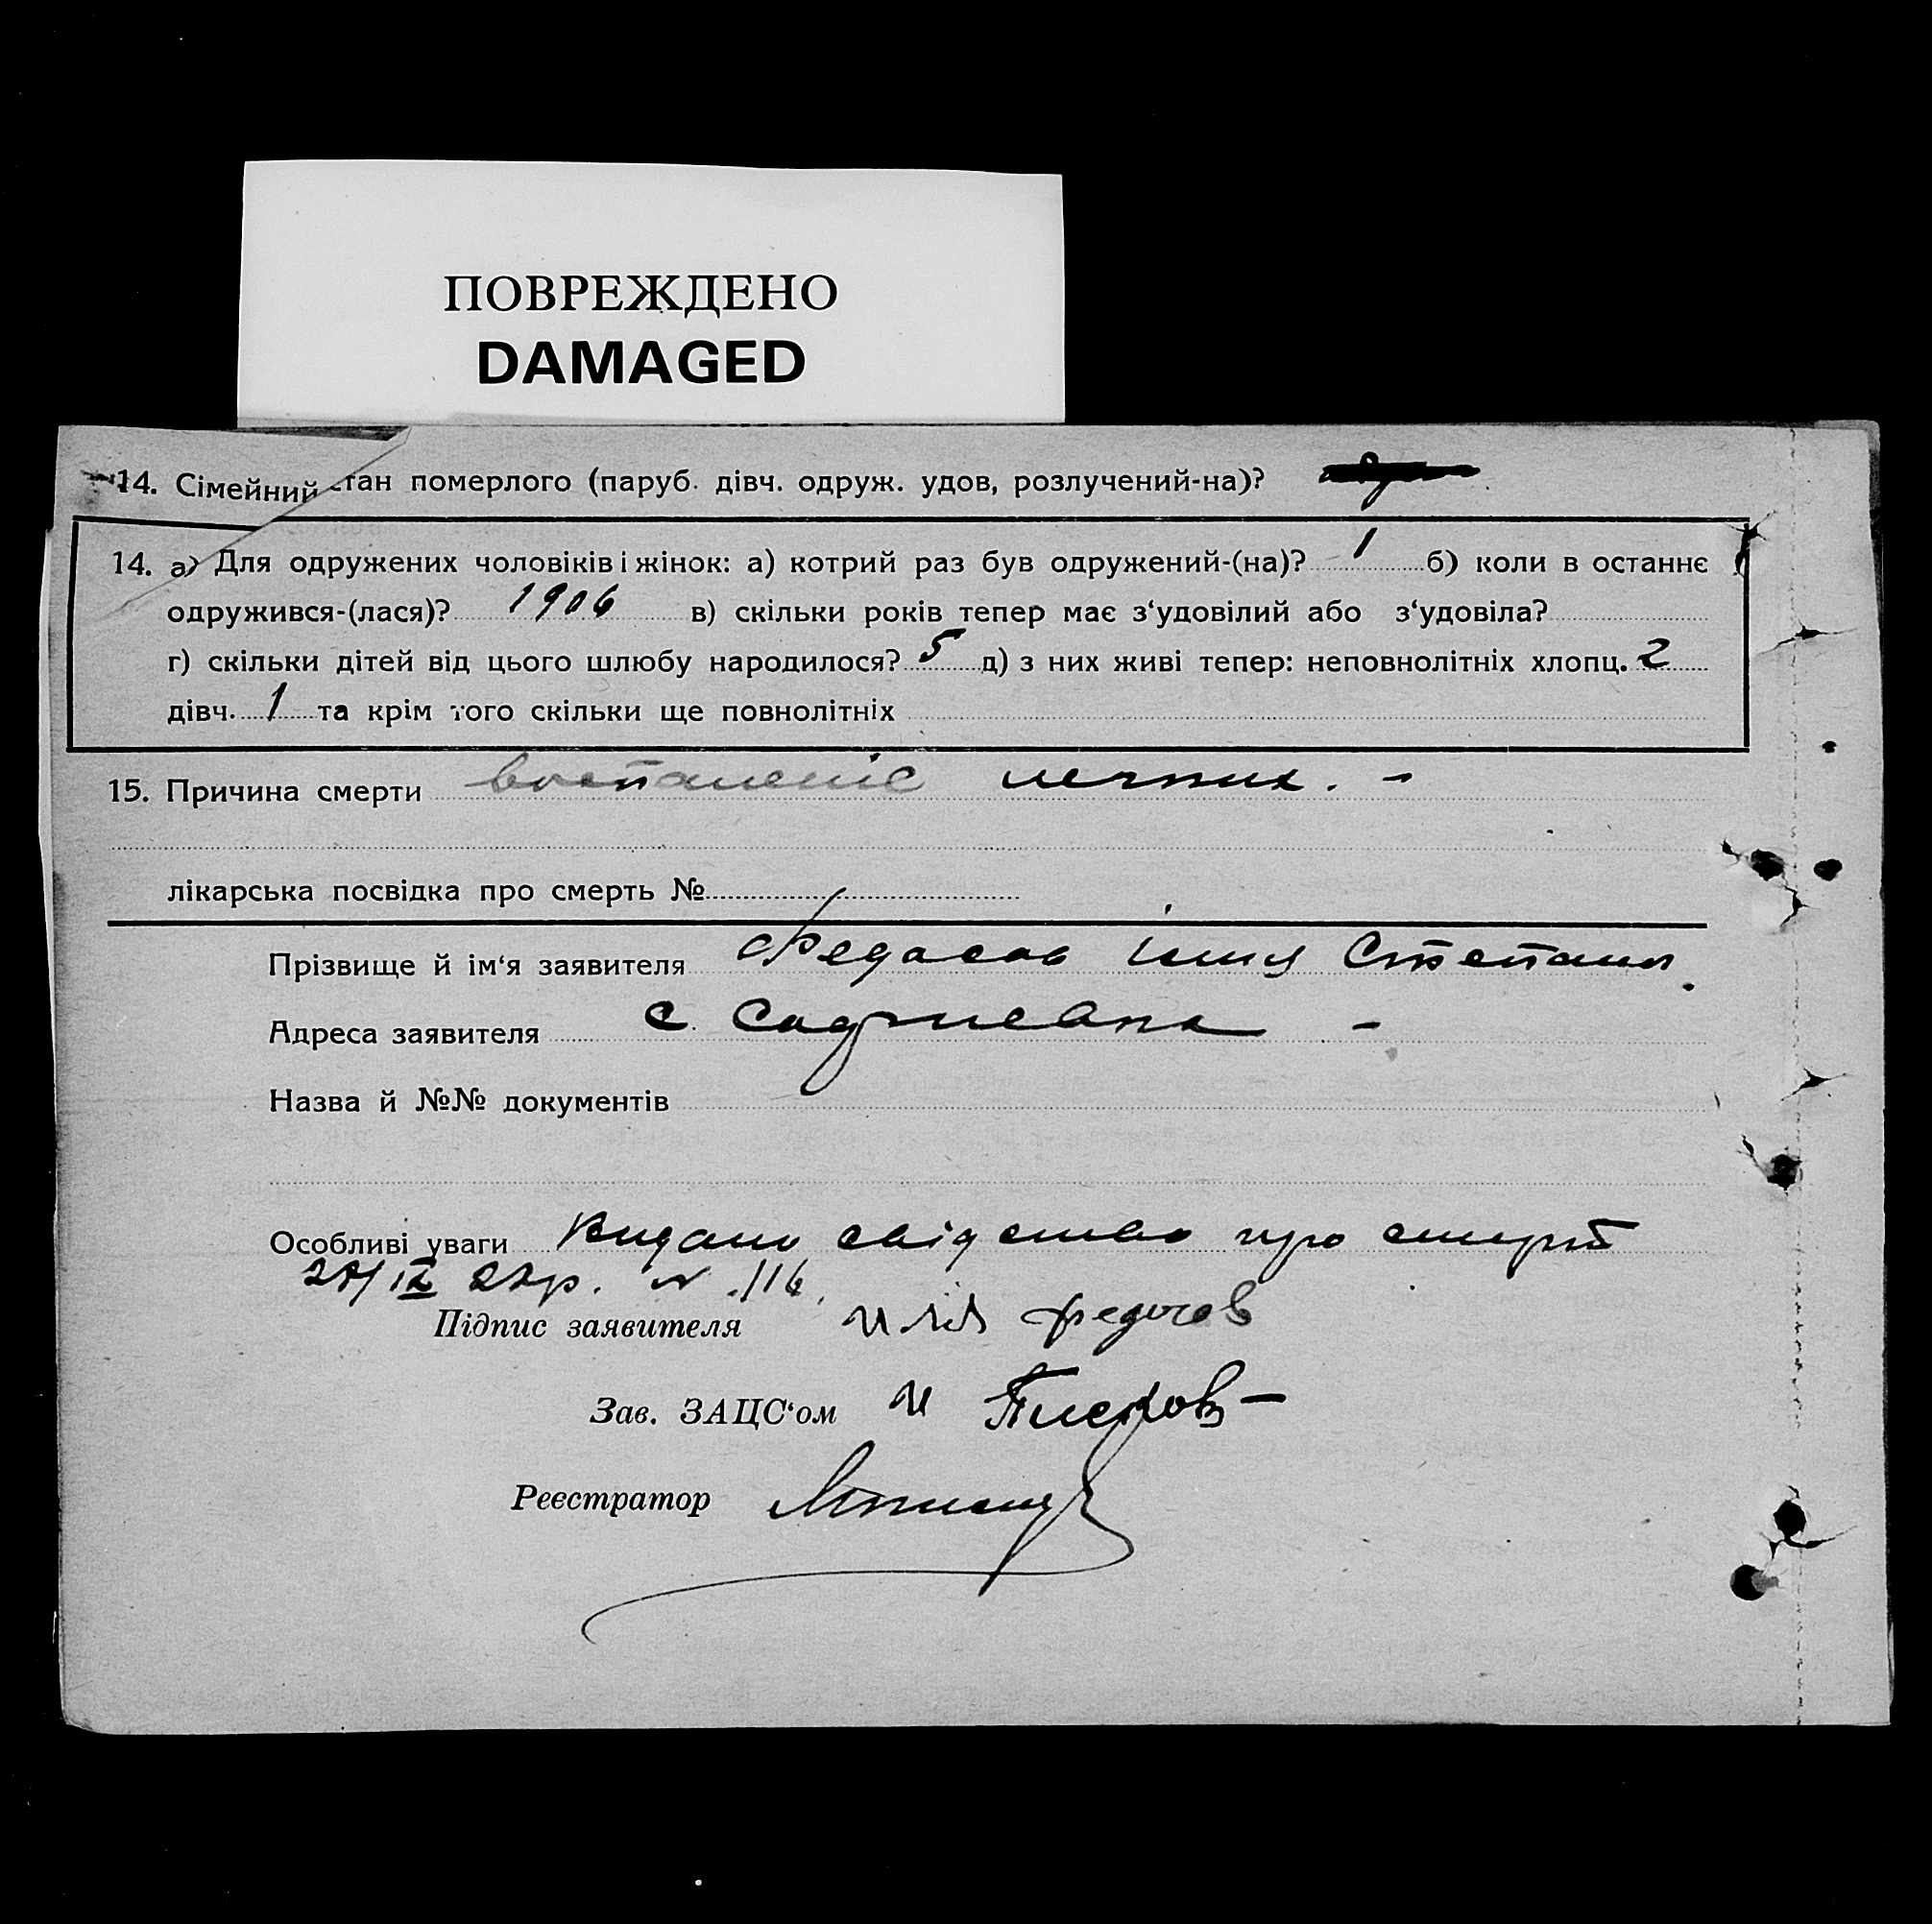 ПОВРЕЖДЕНО
DAMAGED
14. Сімейний стан померлого (паруб. дівч. одруж. удов, розлучений-на)?
14. а) Для одружених чоловіків і жінок: а) котрий раз був одружений-(на)? 1 б) коли в останнє
одружився-(лася)? 1906 в) скільки років тепер має з‘удовілий або з‘удовіла?
г) скільки дітей від цього шлюбу народилося? 5 д) з них живі тепер: неповнолітніх хлопц. 2
дівч. 1 та крім того скільки ще повнолітніх
15. Причина смерти
лікарська посвідка про смерть №
Прізвище й ім‘я заявителя Степан
Адреса заявителя с.
Назва й №№ документів
Особливі уваги Видано свідство про смерть
IX 22р. N 116.
Підпис заявителя Илия
Зав. ЗАЦС‘ом И
Реєстратор